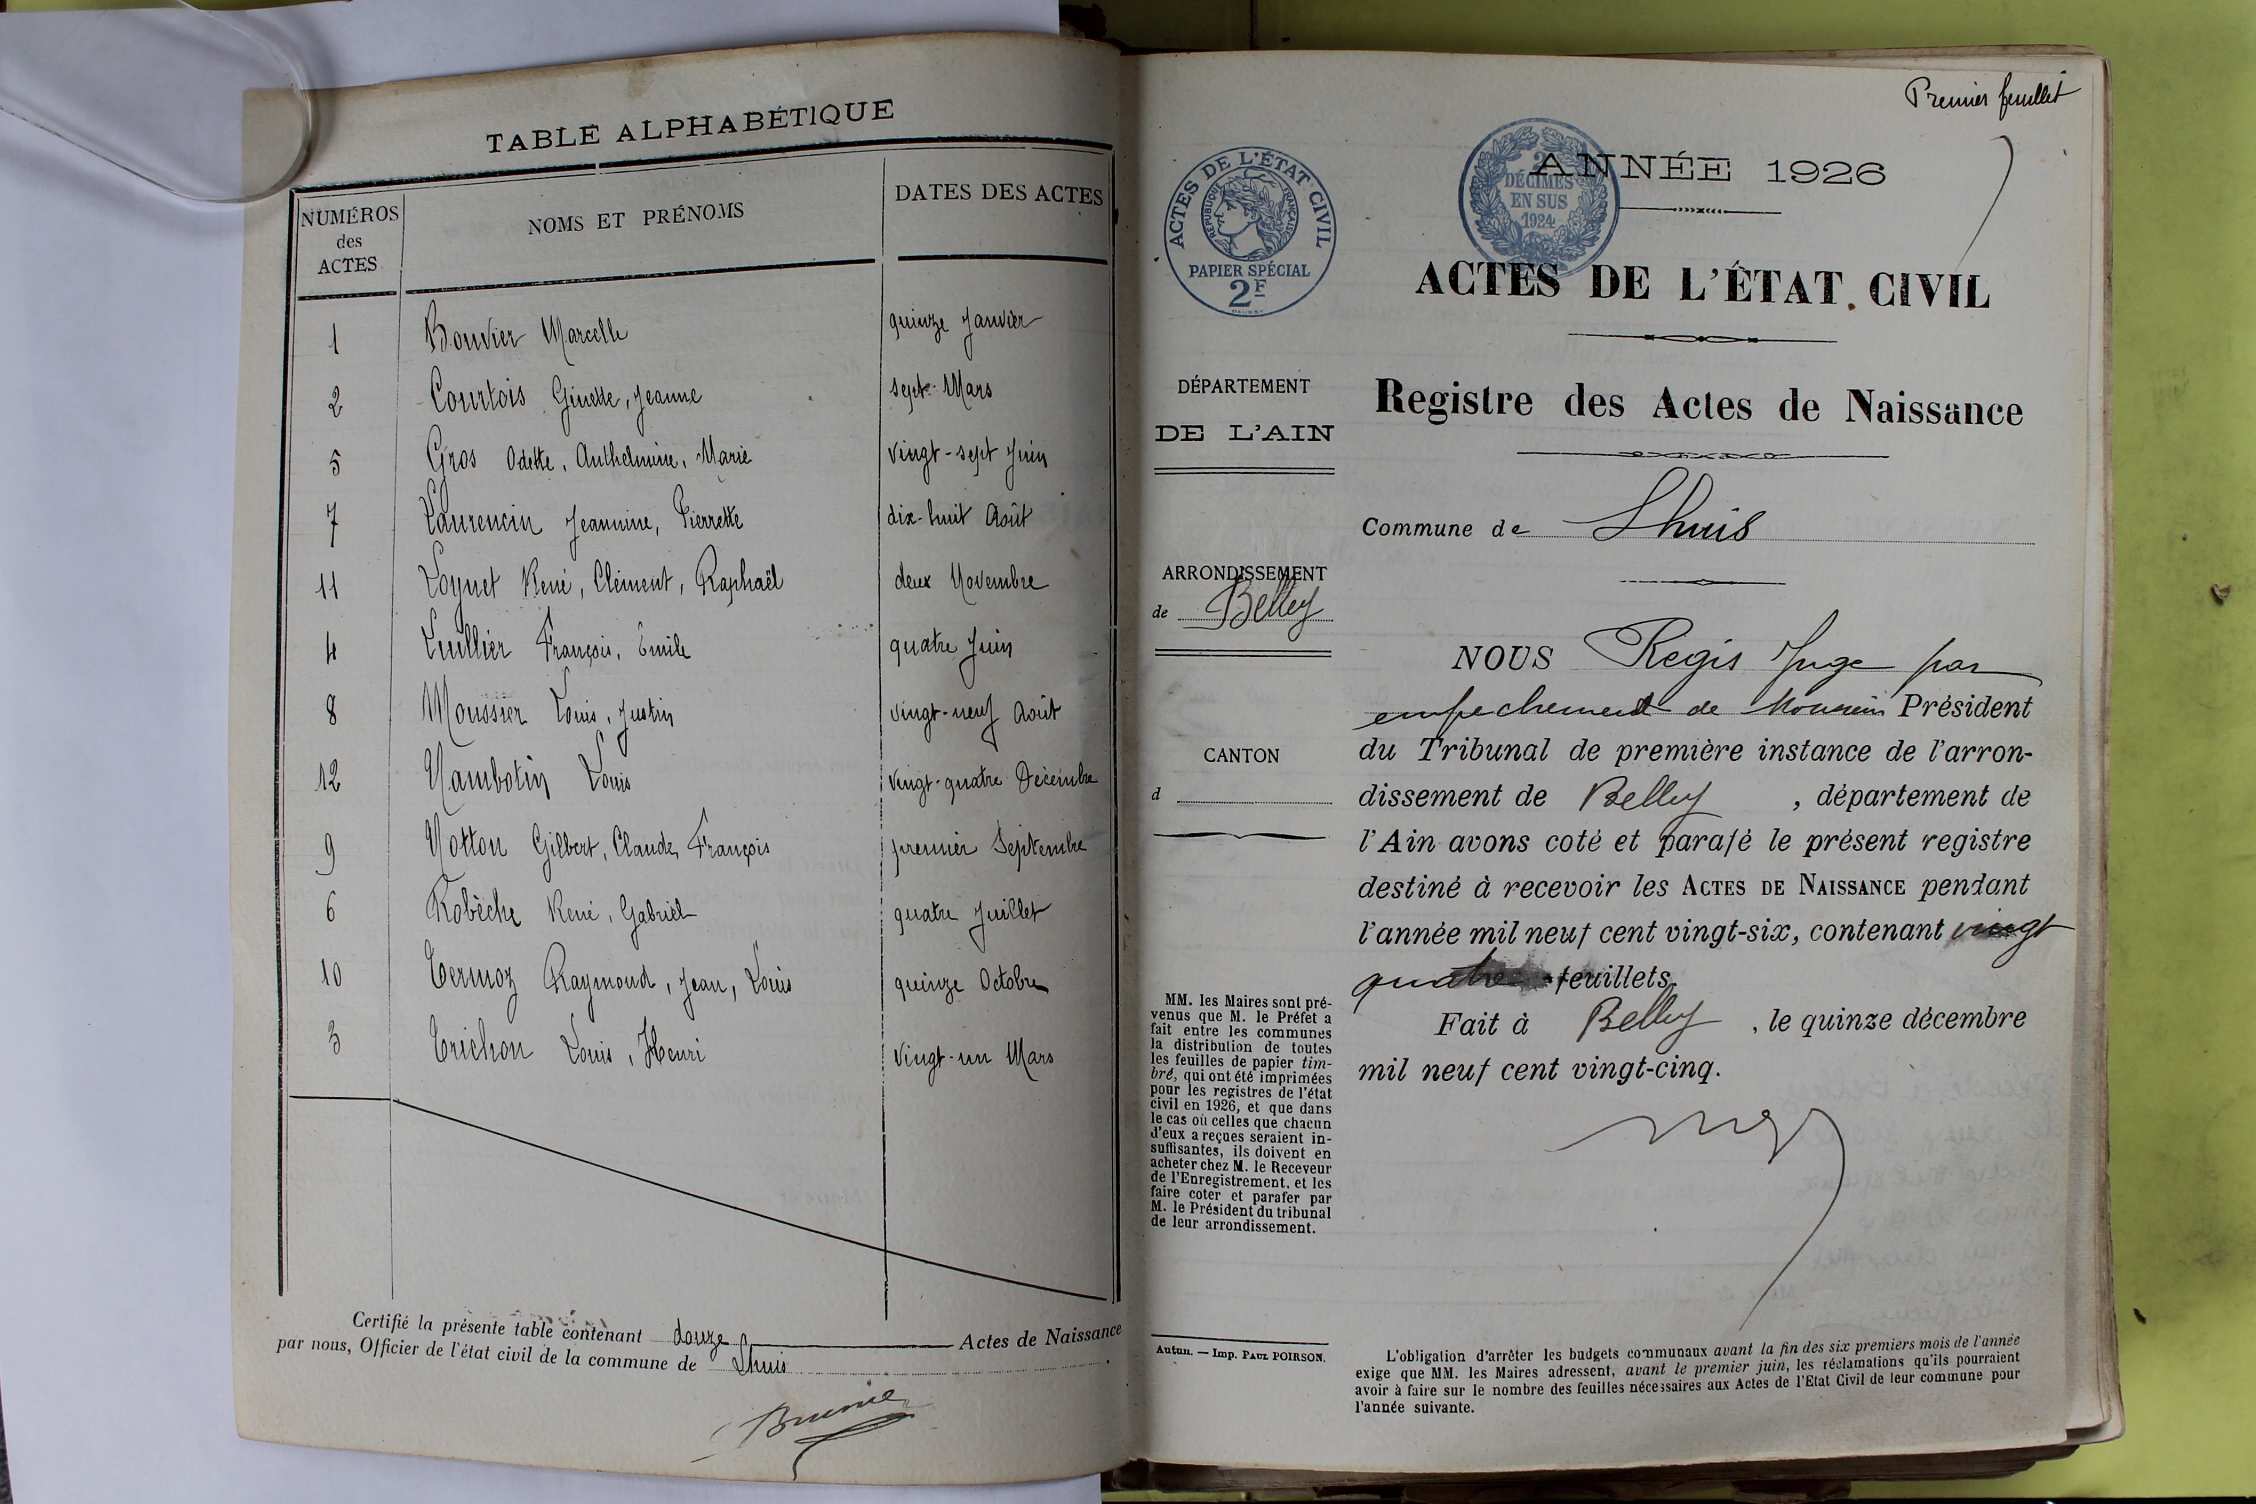 TABLE ALPHABÉTIQUE
NUMÉROS des ACTES NOMS ET PRÉNOMS DATES DES ACTES
1 Bouvier Marcelle quinze Janvier
2 Courtois Ginette, Jeanne sept Mars
5 Gros Odette, Anthelmine, Marie vingt-sept Juin
7 Laurencin Jeannine, Pierrette dix-huit Août
11 Loynet René, Clément, Raphaël deux Novembre
4 Luillier François, Emile quatre Juin
8 Moussier Louis, Justin vingt-neuf Août
12 Nambotin Louis vingt-quatre Décembre
9 Notton Gilbert, Claude, François premier Septembre
6 Robèche René, Gabriel quatre Juillet
10 Termoz Raymond, Jean, Louis quinze Octobre
3 Trichon Louis, Henri vingt-un Mars
Certifié la présente table contenant douze Actes de Naissance
par nous, Officier de l'état civil de la commune de Lhuis
Premier feuillet
ACTES DE L'ÉTAT CIVIL
RÉPUBLIQUE FRANÇAISE
PAPIER SPÉCIAL
2F
2
DÉCIMES
EN SUS
1924
ANNÉE 1926
ACTES DE L'ÉTAT CIVIL
Registre des Actes de Naissance
Commune de Lhuis
DÉPARTEMENT
DE L'AIN
ARRONDISSEMENT
de Belley
CANTON
d
MM. les Maires sont pré-
venus que M. le Préfet a
fait entre les communes
la distribution de toutes
les feuilles de papier tim-
bré, qui ont été imprimées
pour les registres de l'état
civil en 1926, et que dans
le cas où celles que chacun
d'eux a reçues seraient in-
suffisantes, ils doivent en
acheter chez M. le Receveur
de l'Enregistrement, et les
faire coter et parafer par
M. le Président du tribunal
de leur arrondissement.
Autun. — Imp. PAUL POIRSON.
NOUS Regis Juge par
empechement de Monsieur Président
du Tribunal de première instance de l'arron-
dissement de Belley , département de
l'Ain avons coté et parafé le présent registre
destiné à recevoir les ACTES DE NAISSANCE pendant
l'année mil neuf cent vingt-six, contenant vingt
quatre feuillets.
Fait à Belley , le quinze décembre
mil neuf cent vingt-cinq.
L'obligation d'arrêter les budgets communaux avant la fin des six premiers mois de l'année
exige que MM. les Maires adressent, avant le premier juin, les réclamations qu'ils pourraient
avoir à faire sur le nombre des feuilles nécessaires aux Actes de l'Etat Civil de leur commune pour
l'année suivante.